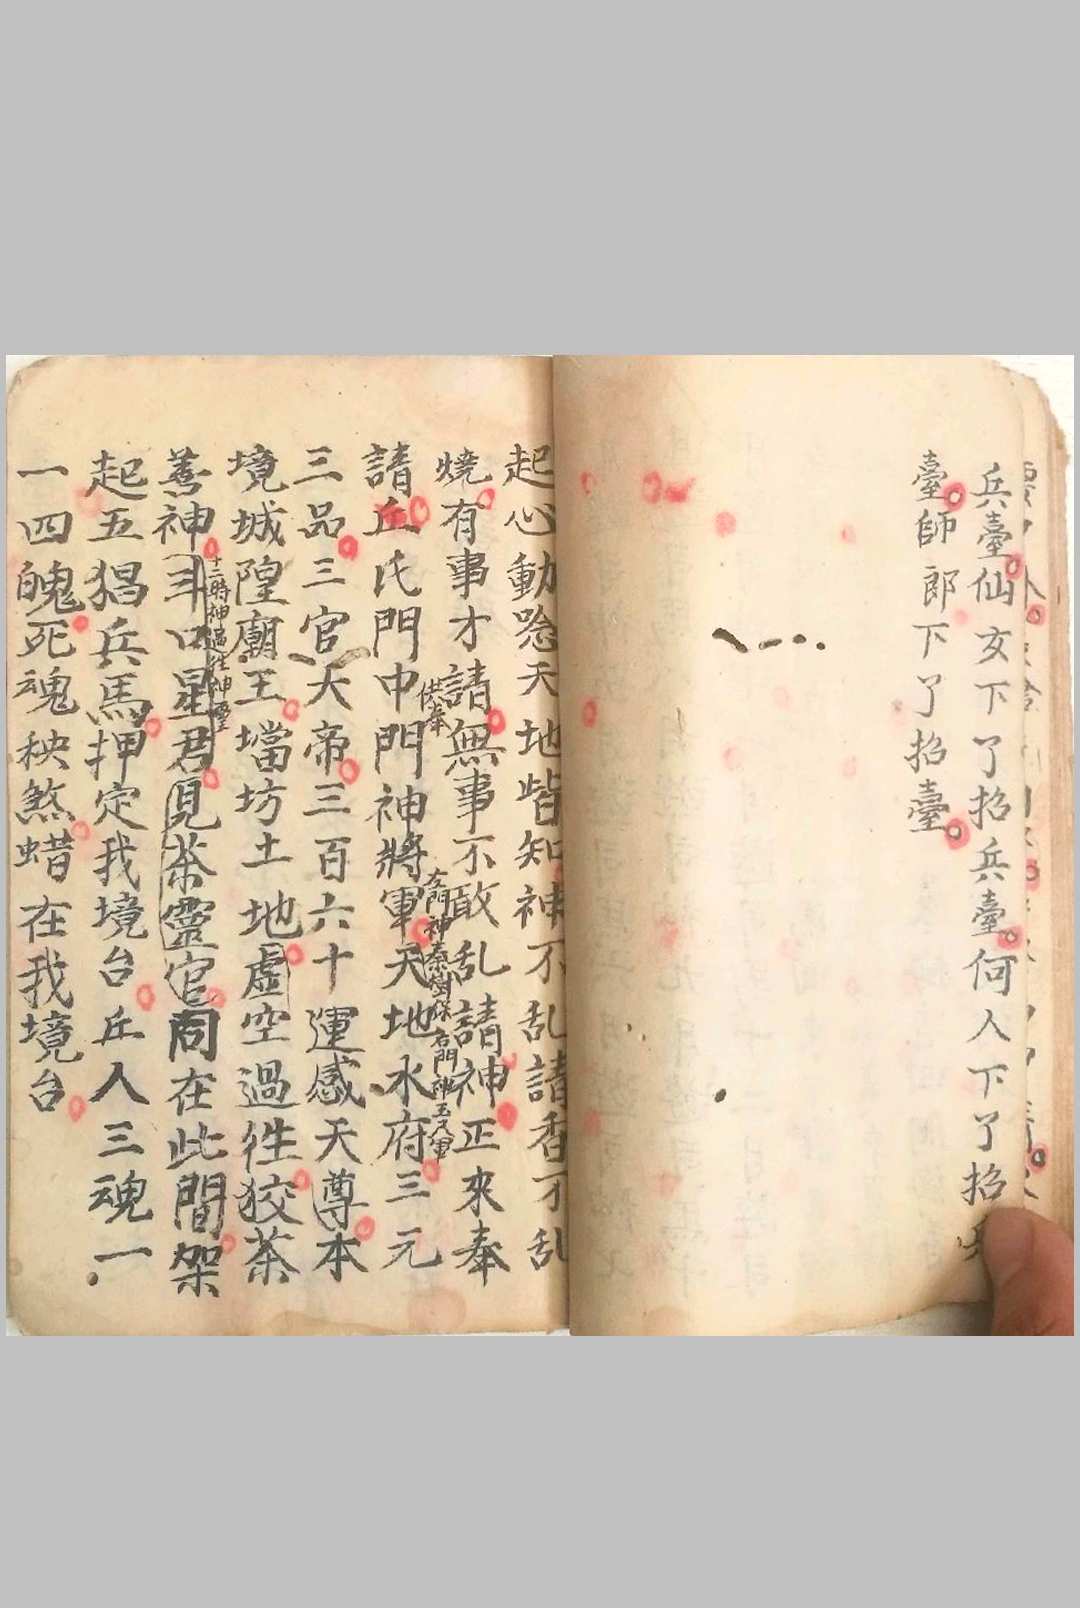 兵臺仙女下了招兵臺何人下了招兵
臺師郎下了招臺
起心動唸天地皆知神不乱請香不乱
燒有事才請無事不敢乱請神正來奉
供奉
左門神秦樹保右門神玉文軍
請丘氏門中門神將軍天地水府三元
三品三官大帝三百六十運感天尊本
境城隍廟王壋坊土地虛空過徃狡茶
十二時神過往神靈
善神斗口星君見茶靈官同在此間架
起五猖兵馬押定我境台丘人三魂一
一四魄死魂秧煞蜡在我境台